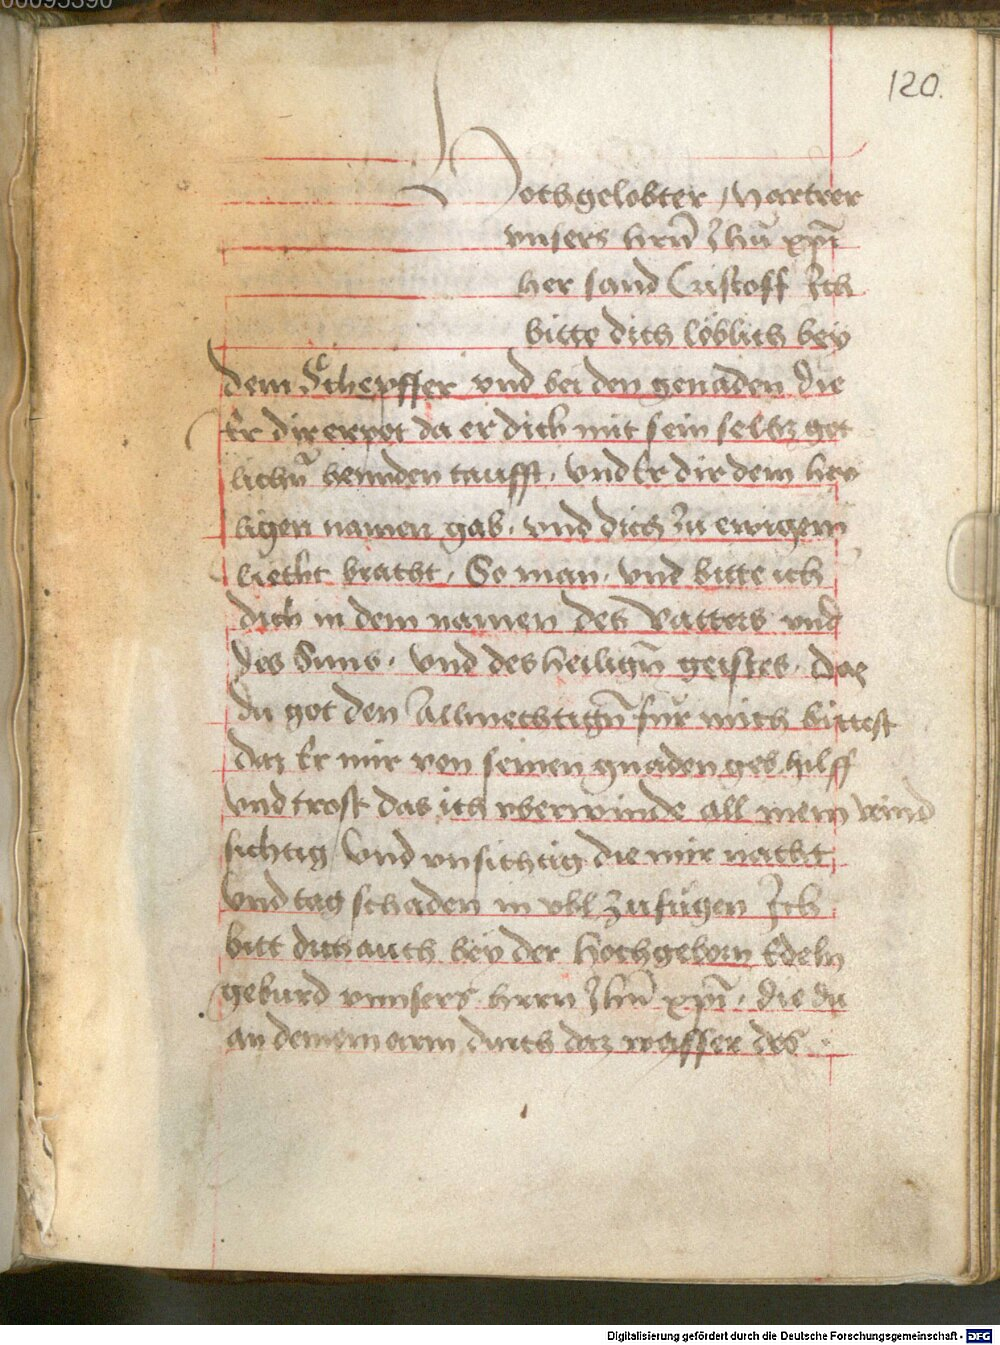 120.
Hochgelobter Martrer
vnsers hrñ Jhũ xpi̅
her sand Cristoff Ich
bitte dich löblich bey
dem Schepffer vnd bei den genaden die
Er dir erpot da er dich mit sein selbz got
lichñ hennden taufft. Vnd Er dir dem hey
ligen namen gab. vnd dich zu ewigem
liecht bracht. So man. vnd bitte ich
dich in dem namen des Vatters vnd
des Suns. vnd des heiligñ geistes. daz
du got den Allmechtigñ für mich bittest
daz Er mir von seinen gnaden geb hilff
vnd trost das ich vberwinde all mein veind
sichtig Vnd vnsichtig die mir nacht
Vnd tag schaden in vbl zufügen Ich
bitt dich auch bey der hochgeborn Edeln
geburd vnnsers hrrn Jhũ xpi̅. die du
an deinem arm durch daz wasser des
Digitalisierung gefördert durch die Deutsche Forschungsgemeinschaft - DFG